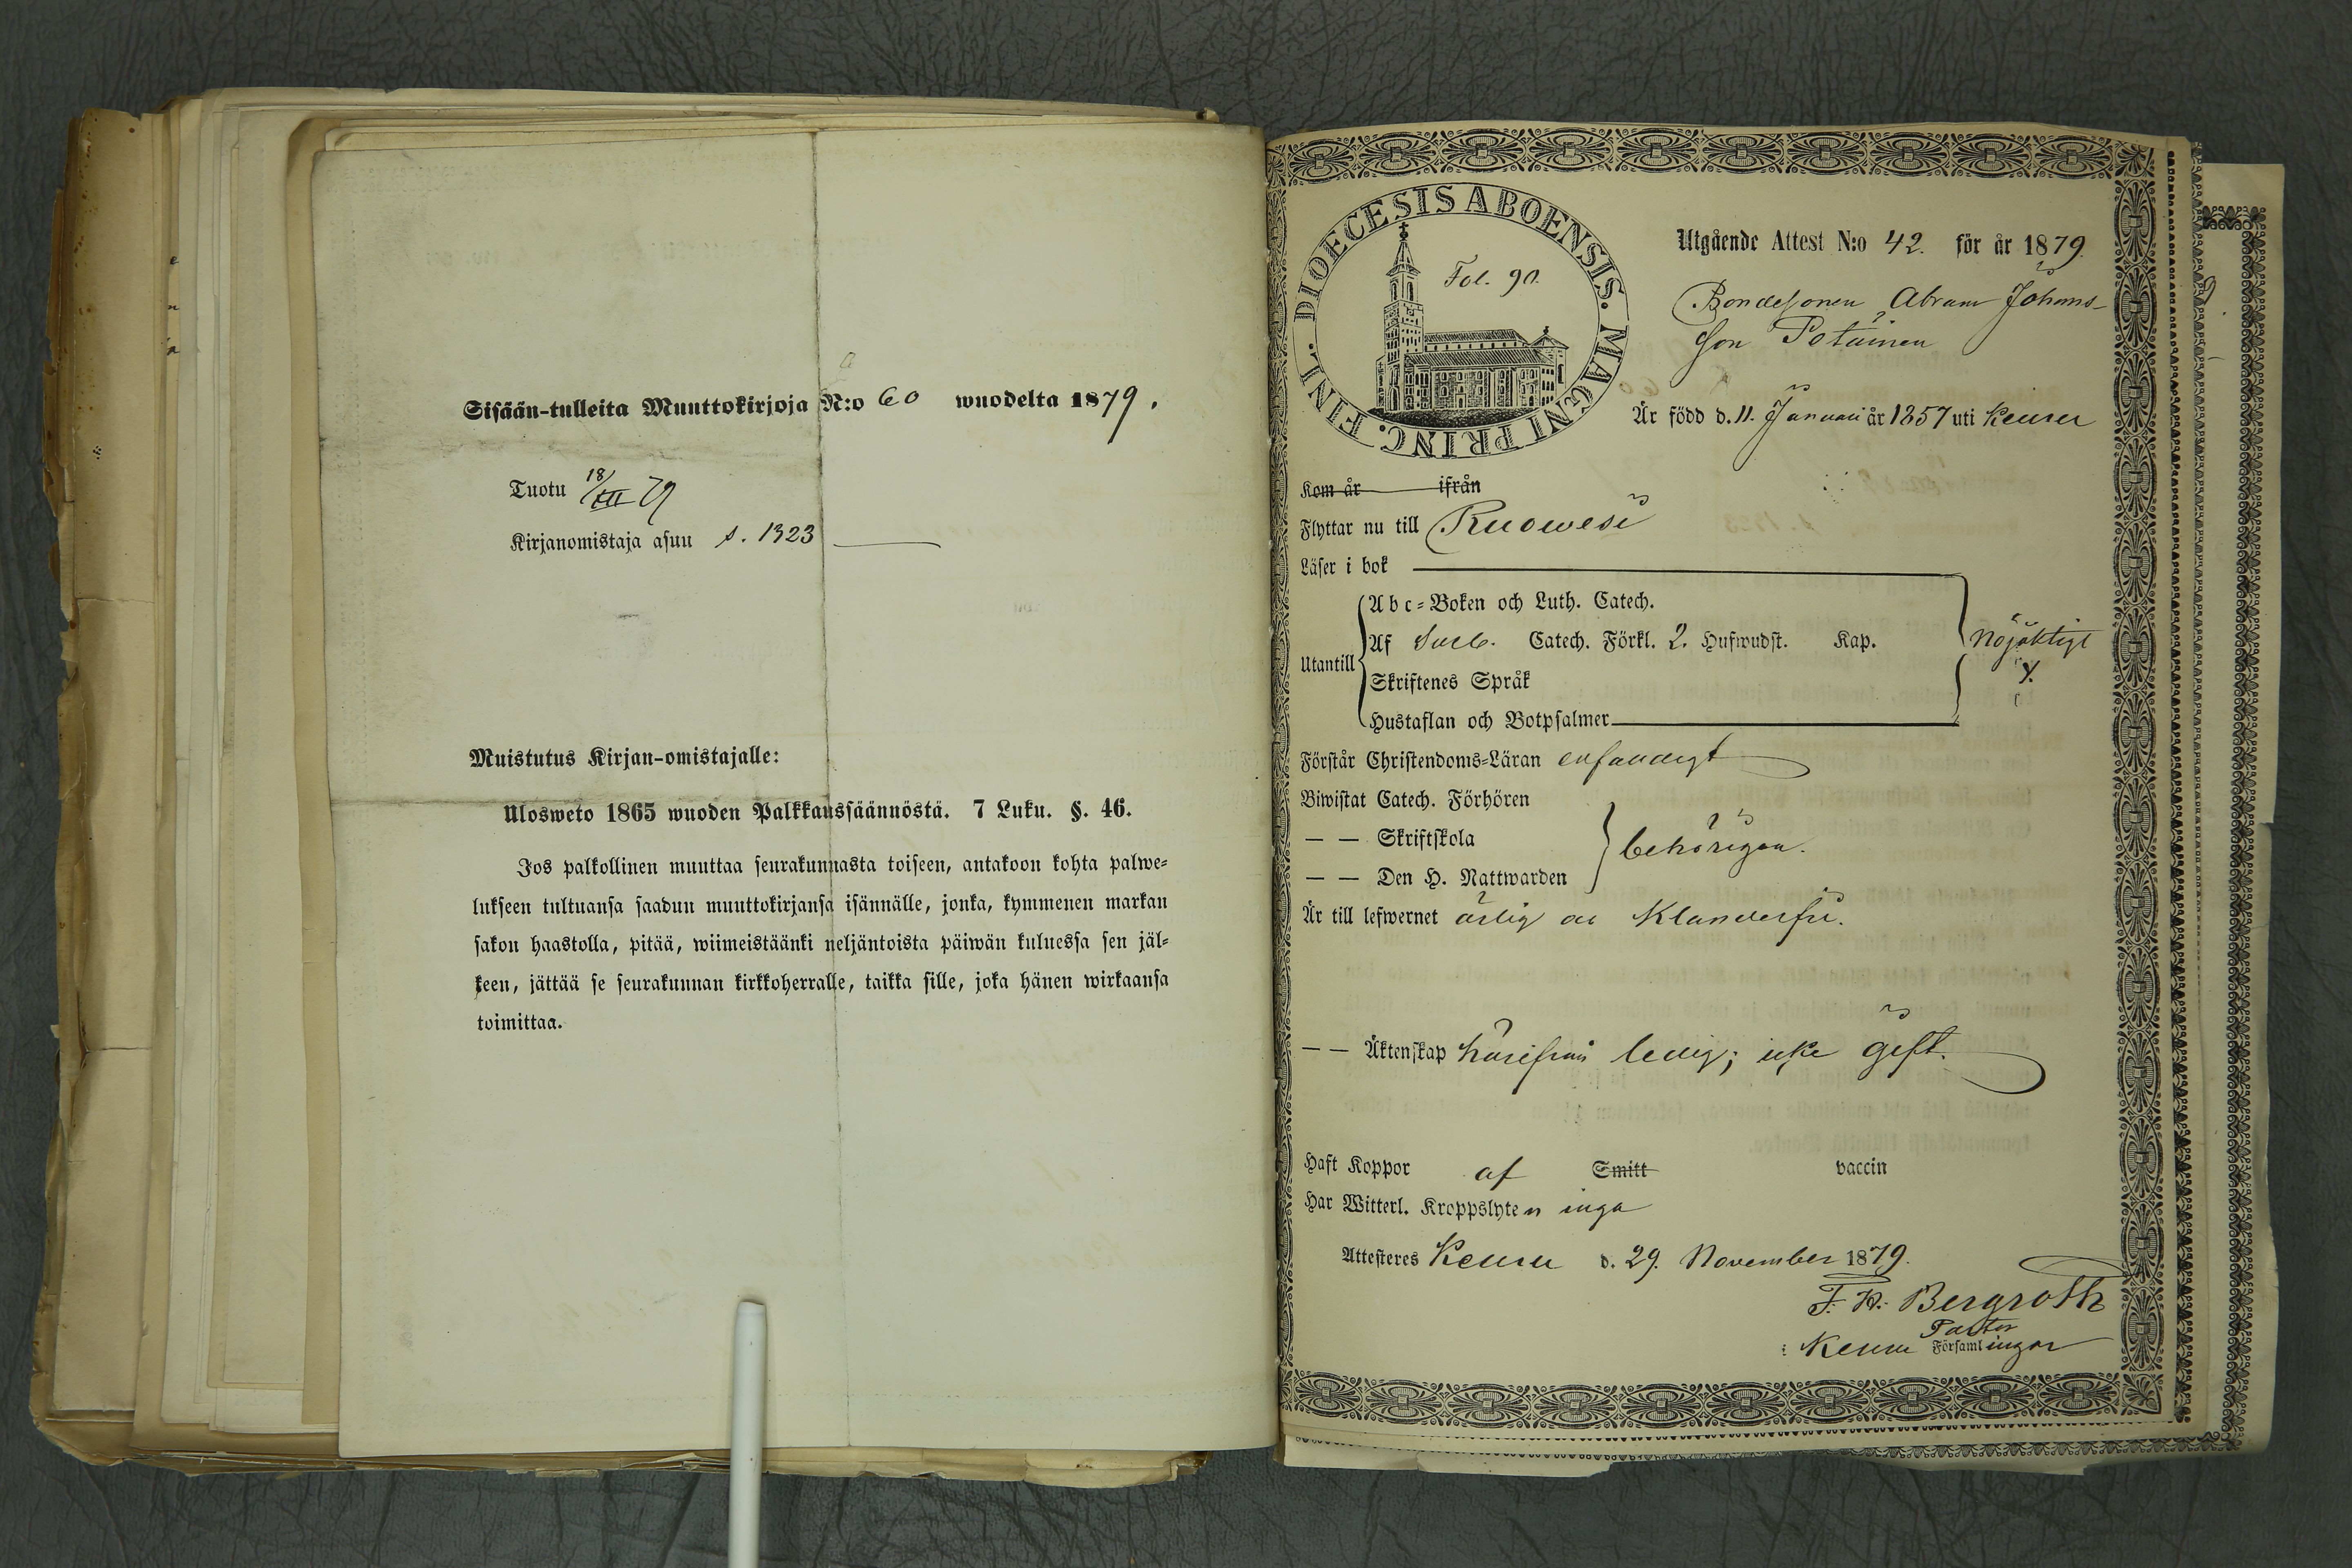 Sisään-tulleita Muuttokirjoja N:o 60 wuodelta 1879.
Tuotu 18/XII 79
Kirjanomistaja asuu s. 1323
Muistutus Kirjan-omistajalle:
Ulosweto 1865 wuoden Palkkaussäännöstä. 7 Luku. §. 46.
Jos palkollinen muuttaa seurakunnasta toiseen, antakoon kohta palwe-
lukseen tultuansa saadun muuttokirjansa isännälle, jonka, kymmenen markan
sakon haastolla, pitää, wiimeistäänki neljäntoista päiwän kuluessa sen jäl-
keen, jättää se seurakunnan kirkkoherralle, taikka sille, joka hänen wirkaansa
toimittaa.
DIOECESIS ABOENSIS. MAGNI PRINC. FINL.
Fol. 90.
Utgående Attest N:o 42. för år 1879.
Bondesonen Abram Johans-
son Potäinen
Är född d. 11. Januari år 1857 uti Keuru
Kom år ifrån
Flyttar nu till Ruowesi
Läser i bok
Utantill
Abc-Boken och Luth. Catech.
Af Sveb. Catech. Förkl. 2. Hufwudst. Kap.
Skriftenes Språk
Hustaflan och Botpsalmer
nöjaktigt
Förstår Christendoms-Läran enfaldigt
Biwistat Catech. Förhören
— — Skriftskola
— — Den H. Nattwarden
behörigen.
Är till lefwernet ärlig och klanderfri.
— — Äktenskap härifrån ledig; icke gift.
Haft Koppor af Smitt vaccin
Har Witterl. Kroppslyten inga
Attesteres Keuru d. 29. November 1879.
F. H. Bergroth
Pastor
i Keuru Församlingar